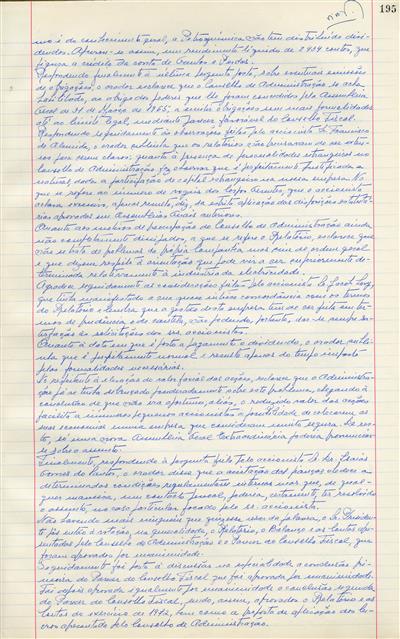 195
mo é do conhecimento geral, a Petroquímica não tem distribuído divi-
dendos. Apurou-se assim, um rendimento líquido de 2 404 contos, que
figura a crédito da conta de Ganhos e Perdas.
Respondendo finalmente à última pergunta posta, sobre eventuais emissões
de obrigações, o orador esclarece que o Conselho de Administração se acha
habilitado, ao abrigo dos poderes que lhe foram concedidos pela Assembleia
Geral de 31 de Março de 1965, a emitir obrigações sem mais formalidades
até ao limite legal, mediante parecer favorável do Conselho Fiscal.
Respondendo seguidamente às observações feitas pelo accionista Sr. Francisco
de Almeida, o orador sublinha que os relatórios não precisavam de ser exten-
sos para serem claros; quanto à presença de personalidades estrangeiras no
Conselho de Administração fez observar que é perfeitamente justificada e
natural, dada a participação de capital estrangeiro na nossa empresa. No
que se refere ao número de vogais dos Corpos Gerentes, que o accionista
achara excessivo, apenas resulta, diz, da estrita aplicação das disposições estatutá-
rias aprovadas em Assembleias Gerais anteriores.
Quanto aos motivos de preocupação do Conselho de Administração ainda
não completamente dissipados, a que se refere o Relatório, esclarece que
não se trata de problemas da própria Companhia mas sim de ordem geral
e que dizem respeito à orientação que pode vir a ser superiormente de-
terminada relativamente à indústria da electricidade.
Agradece seguidamente as considerações feitas pelo accionista Sr.
que tinha manifestado a sua quase inteira concordância com os termos
do Relatório e lembra que a gestão desta empresa tem de ser feita em ter-
mos de prudência e de cautela, não podendo, portanto, dar-se sempre sa-
tisfação às solicitações dos seus accionistas.
Quanto à data em que é posto a pagamento o dividendo, o orador subli-
nha que é perfeitamente normal e resulta apenas do tempo imposto
pelas formalidades necessárias.
No respeitante à elevação do valor facial das acções, esclarece que a Administra-
ção já se tinha debruçado ponderadamente sobre este problema, chegando à
conclusão de que não era oportuno, aliás, o reduzido valor das acções
facilita a inúmeros pequenos accionistas a possibilidade de colocarem as
suas economias numa empresa que consideram muito segura. De res-
to, só uma nova Assembleia Geral Extraordinária poderia pronunciar-
se sobre o assunto.
Finalmente, respondendo à pergunta feita pelo accionista Sr. Dr. Isaías
Gomes dos Santos, o orador disse que a aceitação das fianças obedece a
determinadas condições regulamentares internas mas que, de qual-
quer maneira, um contacto pessoal, poderia, certamente, ter resolvido
o assunto, no caso particular focado pelo Sr. accionista.
Não havendo mais ninguém que quisesse usar da palavra, o Sr. Presiden-
te pôs então à votação, na generalidade, o Relatório, o Balanço e as Contas apre-
sentadas pelo Conselho de Administração e o Parecer do Conselho Fiscal, que
foram aprovados por unanimidade.
Seguidamente foi posta à discussão na especialidade a conclusão pri-
meira do Parecer do Conselho Fiscal que foi aprovada por unanimidade.
Foi depois aprovada igualmente por unanimidade a conclusão segunda
do Parecer do Conselho Fiscal, sendo, assim, aprovados o Relatório e as
contas do exercício de 1972, bem como a proposta de aplicação dos lu-
cros apresentada pelo Conselho de Administração.